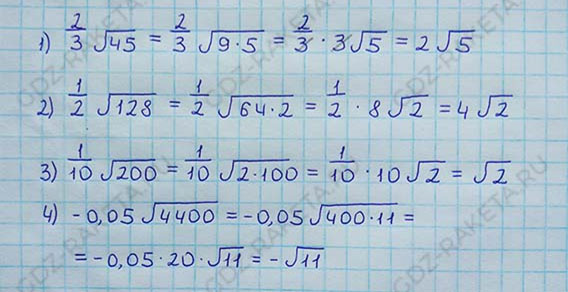 1) 2/3 √45 = 2/3 √9·5 = 2/3 · 3√5 = 2√5
2) 1/2 √128 = 1/2 √64·2 = 1/2 · 8√2 = 4√2
3) 1/10 √200 = 1/10 √2·100 = 1/10 · 10√2 = √2
4) -0,05√4400 = -0,05√400·11 =
= -0,05·20·√11 = -√11
GDZ-RAKETA.RU